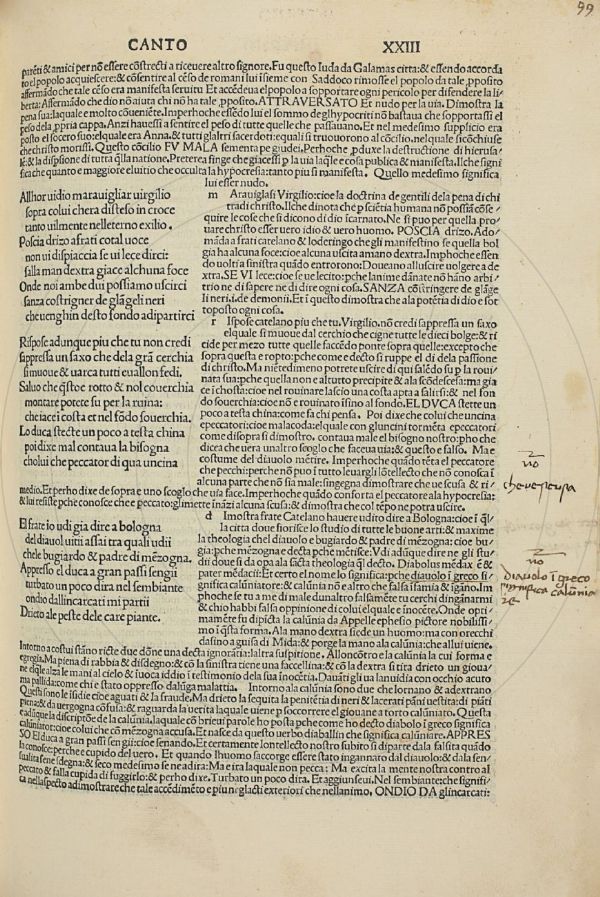 99
CANTO XXIII
parẽti & amici per nõ essere cõstrecti a riceuere altro signore. Fu questo Iuda da Galamas citta: & essendo accorda
to el popolo acquiescere: & cõsentire al cẽso de romani lui ĩsieme con Saddoco rimosse el popolo da tale ,pposito
affermãdo che tale cẽso era manifesta seruitu Et accẽdeua el popolo a sopportare ogni pericolo per difendere la li
berta: Affermãdo che dio nõ aiuta chi nõ ha tale ,pposito. ATTRAVERSATO Et nudo per la uia. Dimostra la
pena sua: laquale e molto cõueniẽte. Imperhoche essẽdo lui el sommo degl hypocriti nõ bastaua che sopportassi el
peso della ,ppria cappa. Anzi hauessi a sentire el peso di tutte quelle che passauano. Et nel medesimo supplicio era
posto el socero suo: elquale era Anna. & tutti glaltri sacerdoti: equali si trouorono al cõcilio. nelquale si cõchiuse
che christo morissi. Questo cõcilio FV MALA sementa pe giudei. Perhoche ,pduxe la destructione di hierusa
lẽ: & la dispsione di tutta q̃lla natione. Preterea finge che giacessi p la uia laq̃le e cosa publica & manifesta. Ilche signi
fica che quanto e maggiore eluitio che occulta la hypocresia: tanto piu si manifesta. Quello medesimo significa
lui esser nudo.
Allhor uidio marauigliar uirgilio
sopra colui chera disteso in croce
tanto uilmente nelleterno exilio.
Poscia drizo afrati cotal uoce
non ui dispiaccia se ui lece dirci:
salla man dextra giace alchuna foce
Onde noi ambe dui possiamo uscirci
sanza costrigner de glãgeli neri
che uenghin desto fondo adipartirci
m Arauiglasi Virgilio: cioe la doctrina de gentili dela pena di chi
tradi christo. Ilche dinota che p sciẽtia humana nõ possiã cõse/
quire le cose che si dicono di dio ĩcarnato. Ne si puo per quella pro
uare christo esser uero idio & uero huomo. POSCIA drizo. Ado
mãda a frati catelano & loderingo che gli manifestino se quella bol
gia ha alcuna foce: cioe alcuna uscita amano dextra. Imphoche essen
do uolti a sinistra quãdo entrorono: Doueano alluscire uolgere a de
xtra. SE VI lece: cioe se ue lecito: pche lanime dãnate nõ hãno arbi/
trio ne di sapere ne di dire ogni cosa. SANZA cõstringere de glãge
li neri. i. de demonii. Et ĩ questo dimostra che ala potẽtia di dio e sot
toposto ogni cosa.
Rispose adunque piu che tu non credi
sappressa un saxo che dela grã cerchia
si muoue & uarca tutti euallon fedi.
Saluo che q̃stoe rotto & nol couerchia
montare potete su per la ruina:
che iacei costa et nel fõdo souerchia.
Lo duca stecte un poco a testa china
poi dixe mal contaua la bisogna
cholui che peccator di qua uncina
r Ispose catelano piu che tu. Virgilio. nõ credi sappressa un saxo
elquale si muoue dal cerchio che cigne tutte le dieci bolge: & ri
cide per mezo tutte quelle faccẽdo ponte sopra quelle: excepto che
sopra questa e ropto: pche come e decto si ruppe el di dela passione
di christo. Ma niẽtedimeno potrete uscire di qui salẽdo su p la roui/
nata sua: pche quella non e altutto precipite & ala scõdescesa: ma gia
ce ĩ chosta: cioe nel rouinare lascio una costa apta a salirsi: & nel fon
do souerchia: cioe nõ e rouinato ĩsino al fondo. EL DVCA stette un
poco a testa china: come fa chi pensa. Poi dixe che colui che uncina
epeccatori: cioe malacoda: elquale con gluncini tormẽta epeccatori
come disopra si dimostro. contaua male el bisogno nostro: pho che
dicea che uera unaltro scoglo che faceua uia: & questo e falso. Ma e
costume del diauolo mẽtire. Imperhoche quãdo tẽta el peccatore
che pecchi: perche nõ puo ĩ tutto leuargli lõtellecto che nõ conosca ĩ
alcuna parte che nõ sia male: singegna dimostrare che ue scusa & ri/
medio. Et perho dixe de sopra e uno scoglo che uia face. Imperhoche quãdo conforta el peccatore ala hypocresia:
& lui resiste pche conosce che e peccato: gli mette inãzi alcuna scusa: & dimostra che col tẽpo ne potra uscire.
El frate io udi gia dire a bologna
del diauol uitii assai tra quali udii
chele bugiardo & padre di mẽzogna.
Appresso el duca a gran passi sengii
turbato un poco dira nel sembiante
ondio dallincarcati mi partii
Drieto ale peste dele care piante.
d Imostra frate Catelano hauere udito dire a Bologna: cioe ĩ q̃l/
la citta doue fiorisce lo studio di tutte le buone arti: & maxime
la theologia chel diauolo e bugiardo & padre di mẽzogna: cioe bu
gia: pche mẽzogna e decta pche mẽtisce: V di adũque dire ne gli stu/
dii doue si da opa ala sacta theologia q̃l decto. Diabolus mẽdax ẽ &
pater mẽdacii: Et certo el nome lo significa: pche diauolo ĩ greco si/
gnifica calũniatore: & calũnia nõ e altro che falsa ĩfamia & ĩgãno. Im
phoche se tu a me di male dunaltro falsamẽte tu cerchi dingãnarmi
& chio habbi falsa oppinione di colui elquale e inocẽte. Onde opti/
mamẽte fu dipicta la calũnia da Appelle ephesio pictore nobilissi/
mo ĩ q̃sta forma. Ala mano dextra siede un huomo: ma con orecchi
dasino a guisa di Mida: & porge la mano ala calũnia: che allui uiene.
Intorno a costui stano ricte due dõne una decta ignorãtia: laltra suspitione. Allonocẽtro la calũnia la cui forma e
egregia. Ma piena di rabbia & di sdegno: & cõ la sinistra tiene una faccellina: & cõ la dextra si tira drieto un gioua/
ne elq̃le alza le mani al cielo & ĩuoca iddio ĩ testimonio dela sua inocẽtia. Dauãti gli ua lanuidia con occhio acuto
ma pallida: come chi e stato oppresso dalũga malattia. Intorno ala calũnia sono due che lornano & adextrano
Questi sono le ĩsidie cioe aguati & la fraude. Ma drieto la sequita la penitẽtia di neri & lacerati pãni uestita: di piãti
piena: & da uergogna cõfusa: & raguarda la uerita laquale uiene p soccorrere el giouane a torto calũniato. Questa
e adunque la discriptõe de la calũnia. laquale cõ brieui parole ho posta pche come ho decto diabolo ĩ greco significa
calũniatore: cioe colui che cõ mẽzogna accusa. Et nasce da questo uerbo diaballin che significa calũniare. APPRES
SO EL duca a gran passi sen gii: cioe senando. Et certamente lontellecto nostro subito si diparte dala falsita quãdo
la conosce: perche e cupido del uero. Et quando lhuomo saccorge essere stato ingannato dal diauolo: & dala sen/
sualita sene sdegna: & seco medesimo se ne adira: Ma e ira laquale non pecca: Ma excita la mente nostra contro al
peccato & falla cupida di fuggirlo: & perho dixe. Turbato un poco dira. Et aggiunseui. Nel sembiante: che signifi/
ca nellaspecto adimostrare che tale accẽdimẽto e piu neglacti exteriori che nellanimo. ONDIO DA glincarcati:
no
no
diauolo ĩ greco
significa calũnia
re